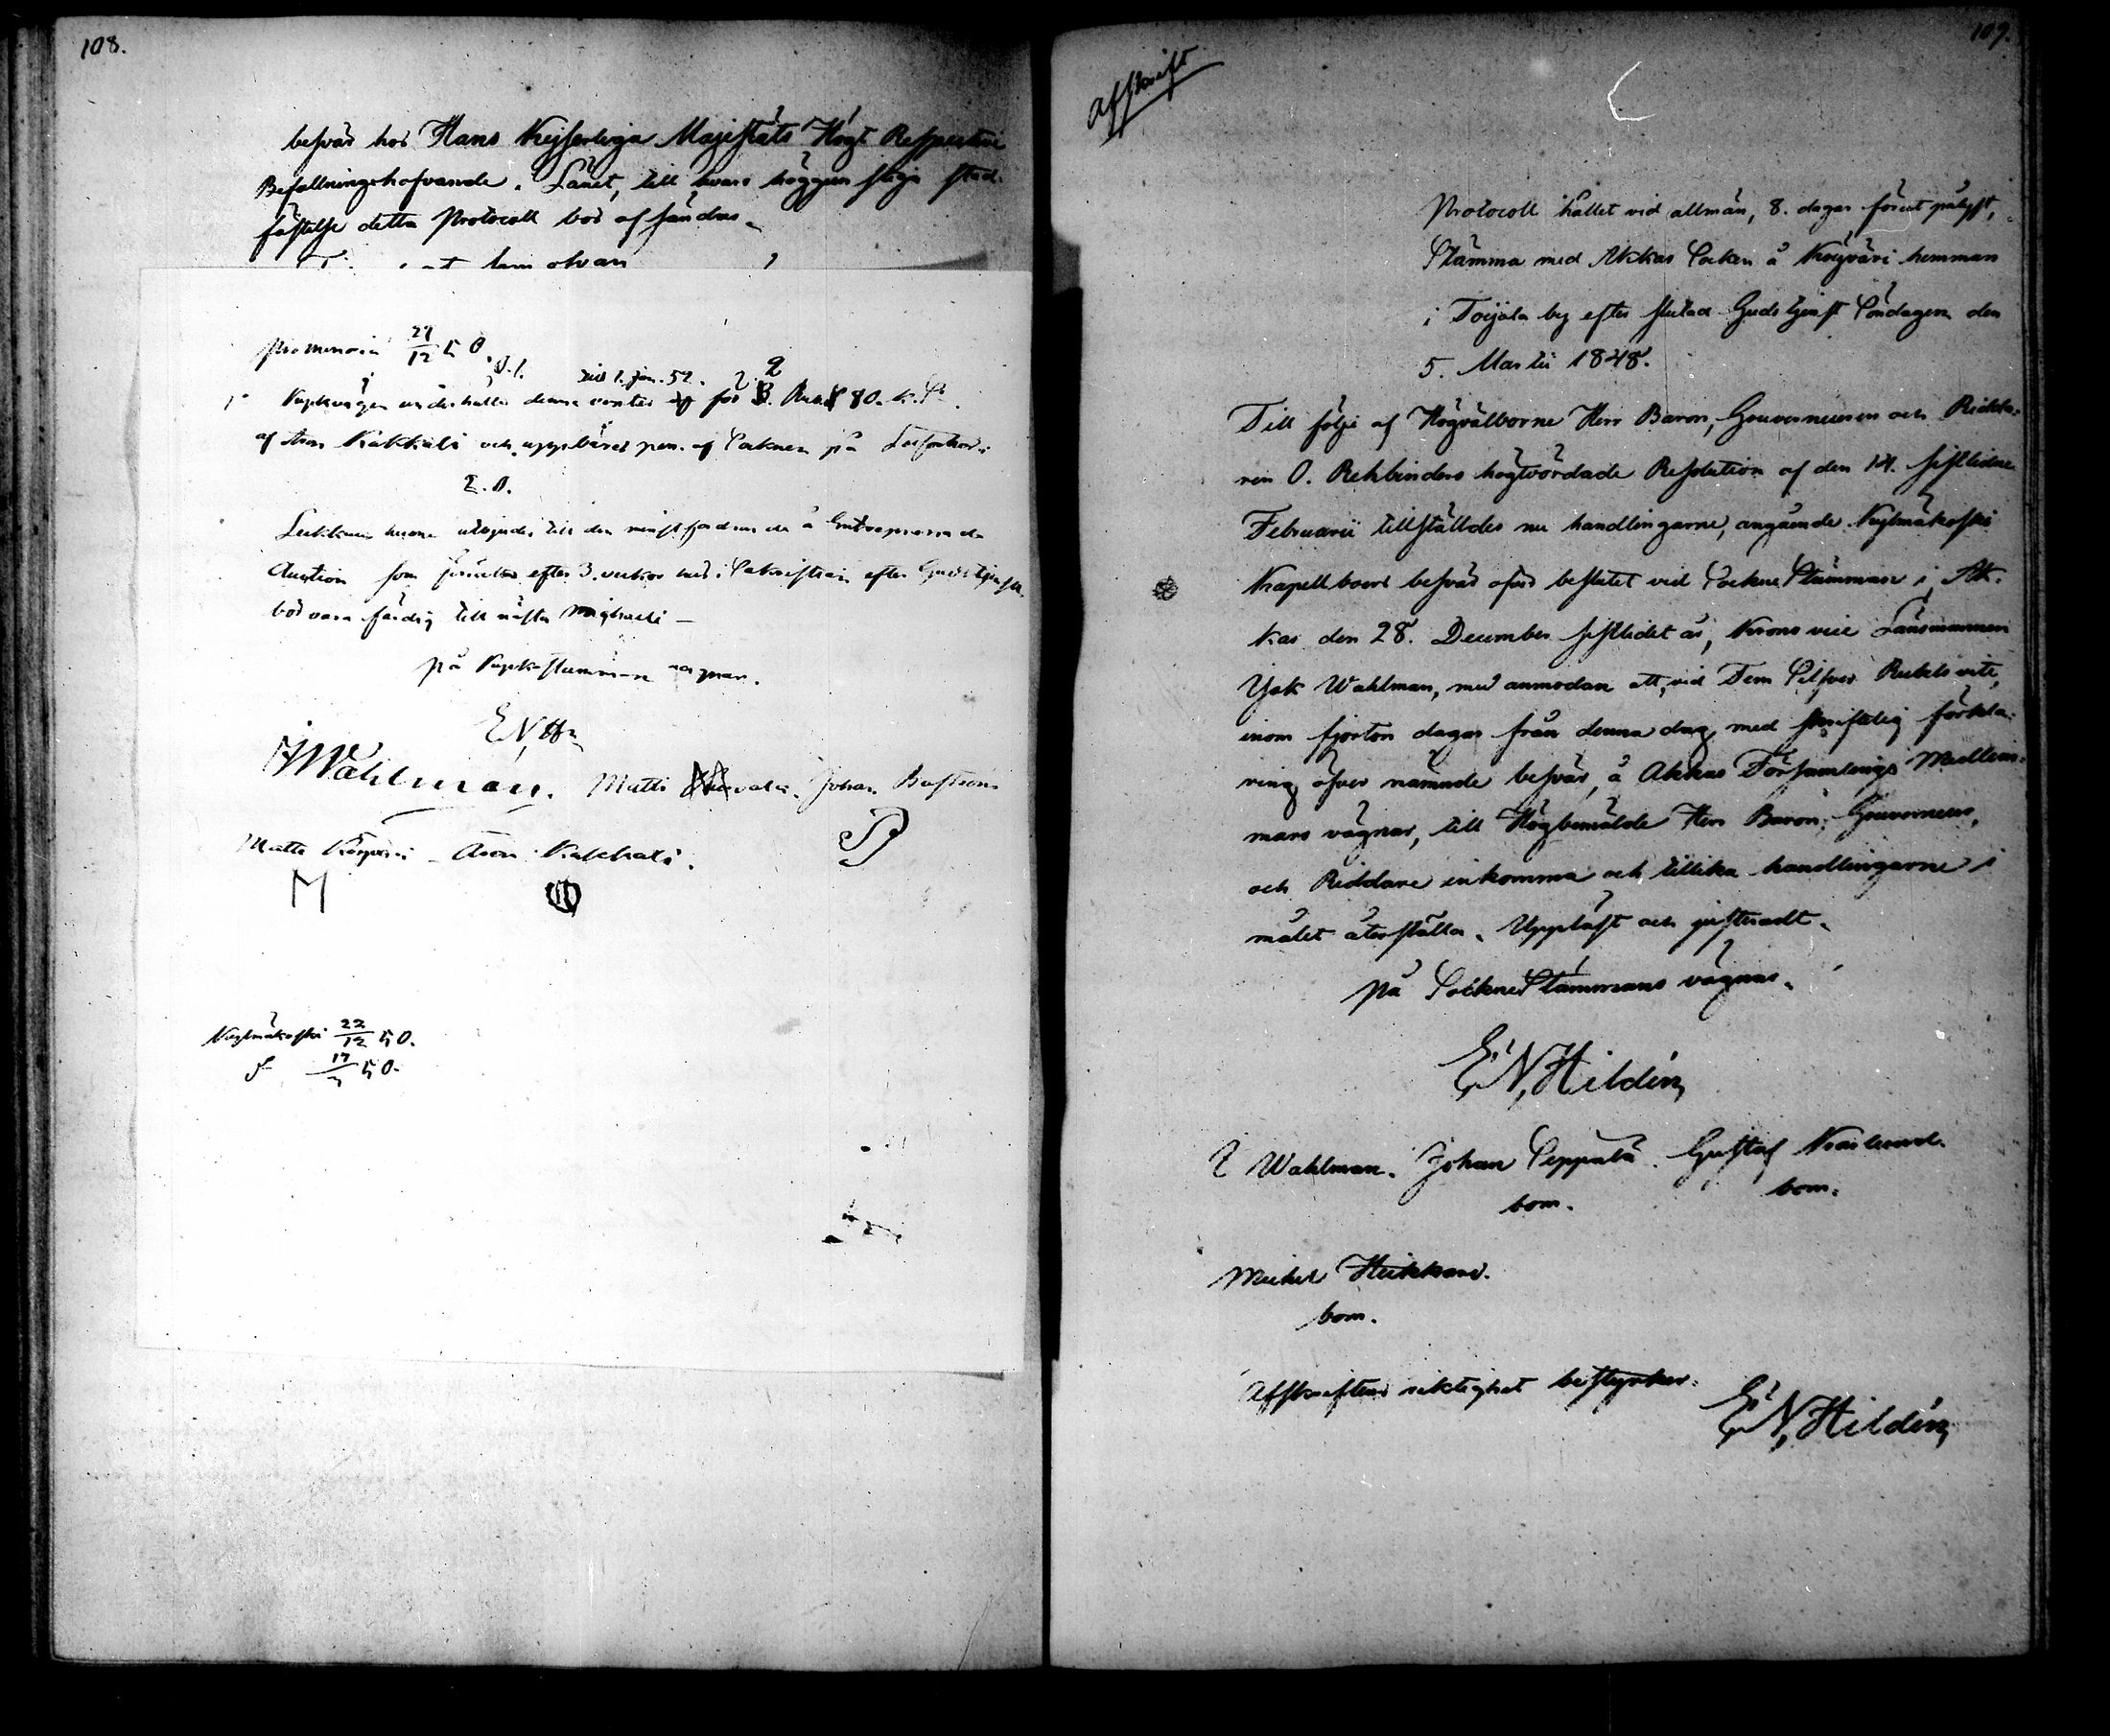 108.
besvär hos Hans Kejserliga Majestäts Högt Respective
Befallningshafvande i Länet, till hvars höggunstiga stad-
fästelse detta Protocoll bör afsändas.
Promemoria 29/12 50.
till 1. Jan. 52.
Kyrkvägen underhålles denna vinter för 80. k. S.
af Aron Kakkula och uppbäres pen. af Socknen på
2. O.
auction som förrättas efter 3. veckor här i Sakristian efter Gudstjensten.
bör vara färdig till nästa Michaeli —
på Kyrkostämmans vägnar.
E. N. Hn
Wahlman. Matti Johan
Matti Köyväri Aron Kakkula.
M
Kylmäkoski 22/12 50.
17/3 50.
109.
Afskrift
Protocoll hållet vid allmän, 8. dagar förut pålyst,
Stämma med Akkas Socken å Köyväri hemman
i Toijala by efter slutad Gudstjenst Söndagen den
5. Martii 1848.
Till följe af Högvälborne Herr Baron, Gouverneuren och Ridda-
ren O. Rehbinders högtvördade Resolution af den 14. sistlidne
Februarii tillställdes nu handlingarne, angående Kylmäkoski
Kapellboers besvär öfver beslutet vid SockneStämman i Ak-
kas den 28. December sistlidet år, Krono vice Länsmannen
Isak Wahlman, med anmodan att, vid Fem Silfver Rubels vite,
inom fjorton dagar från denna dag, med skriftelig förkla-
ring öfver nämnde besvär, å Akkas Församlings Medlem-
mars vägnar, till Högbemälde Herr Baron, Gouverneur,
och Riddare inkomma och tillika handlingarne i
målet återställa. Uppläst och justeradt.
På SockneStämmans vägnar.
E. N. Hildén
I Wahlman. Johan Seppälä. Gustaf
bom. bom.
Michel Heikkari.
bom.
Afskriftens riktighet bestyrker:
E. N. Hildén